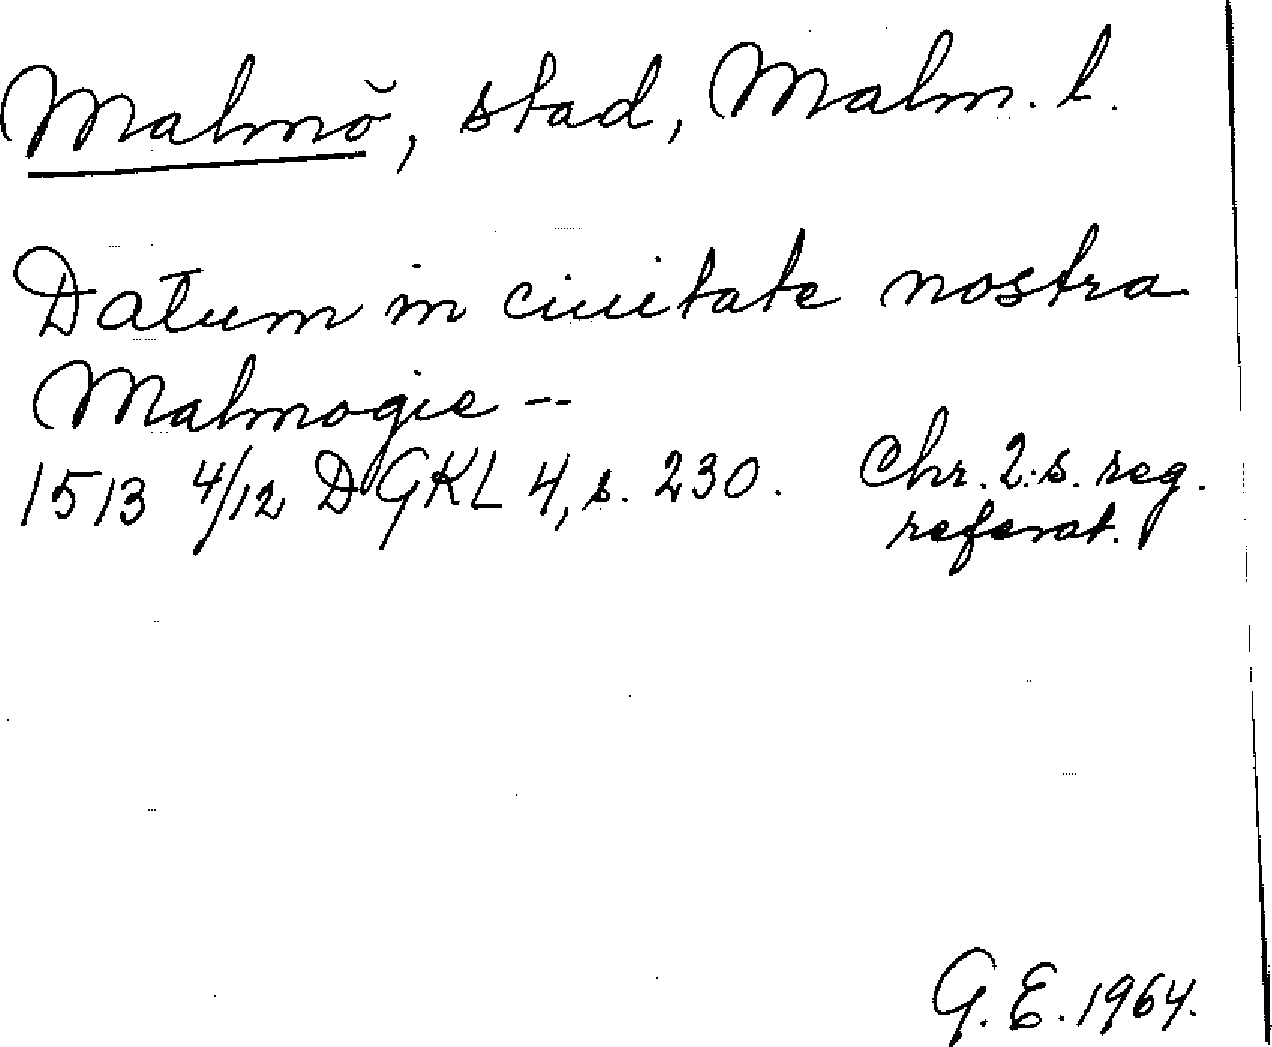 Malmö, stad, Malm. l.
Datum in ciuitate nostra
Malmogie --
1513 4/12 DGKL 4, s. 230. Chr. 2:s. reg.
referat.
G. E. 1964.